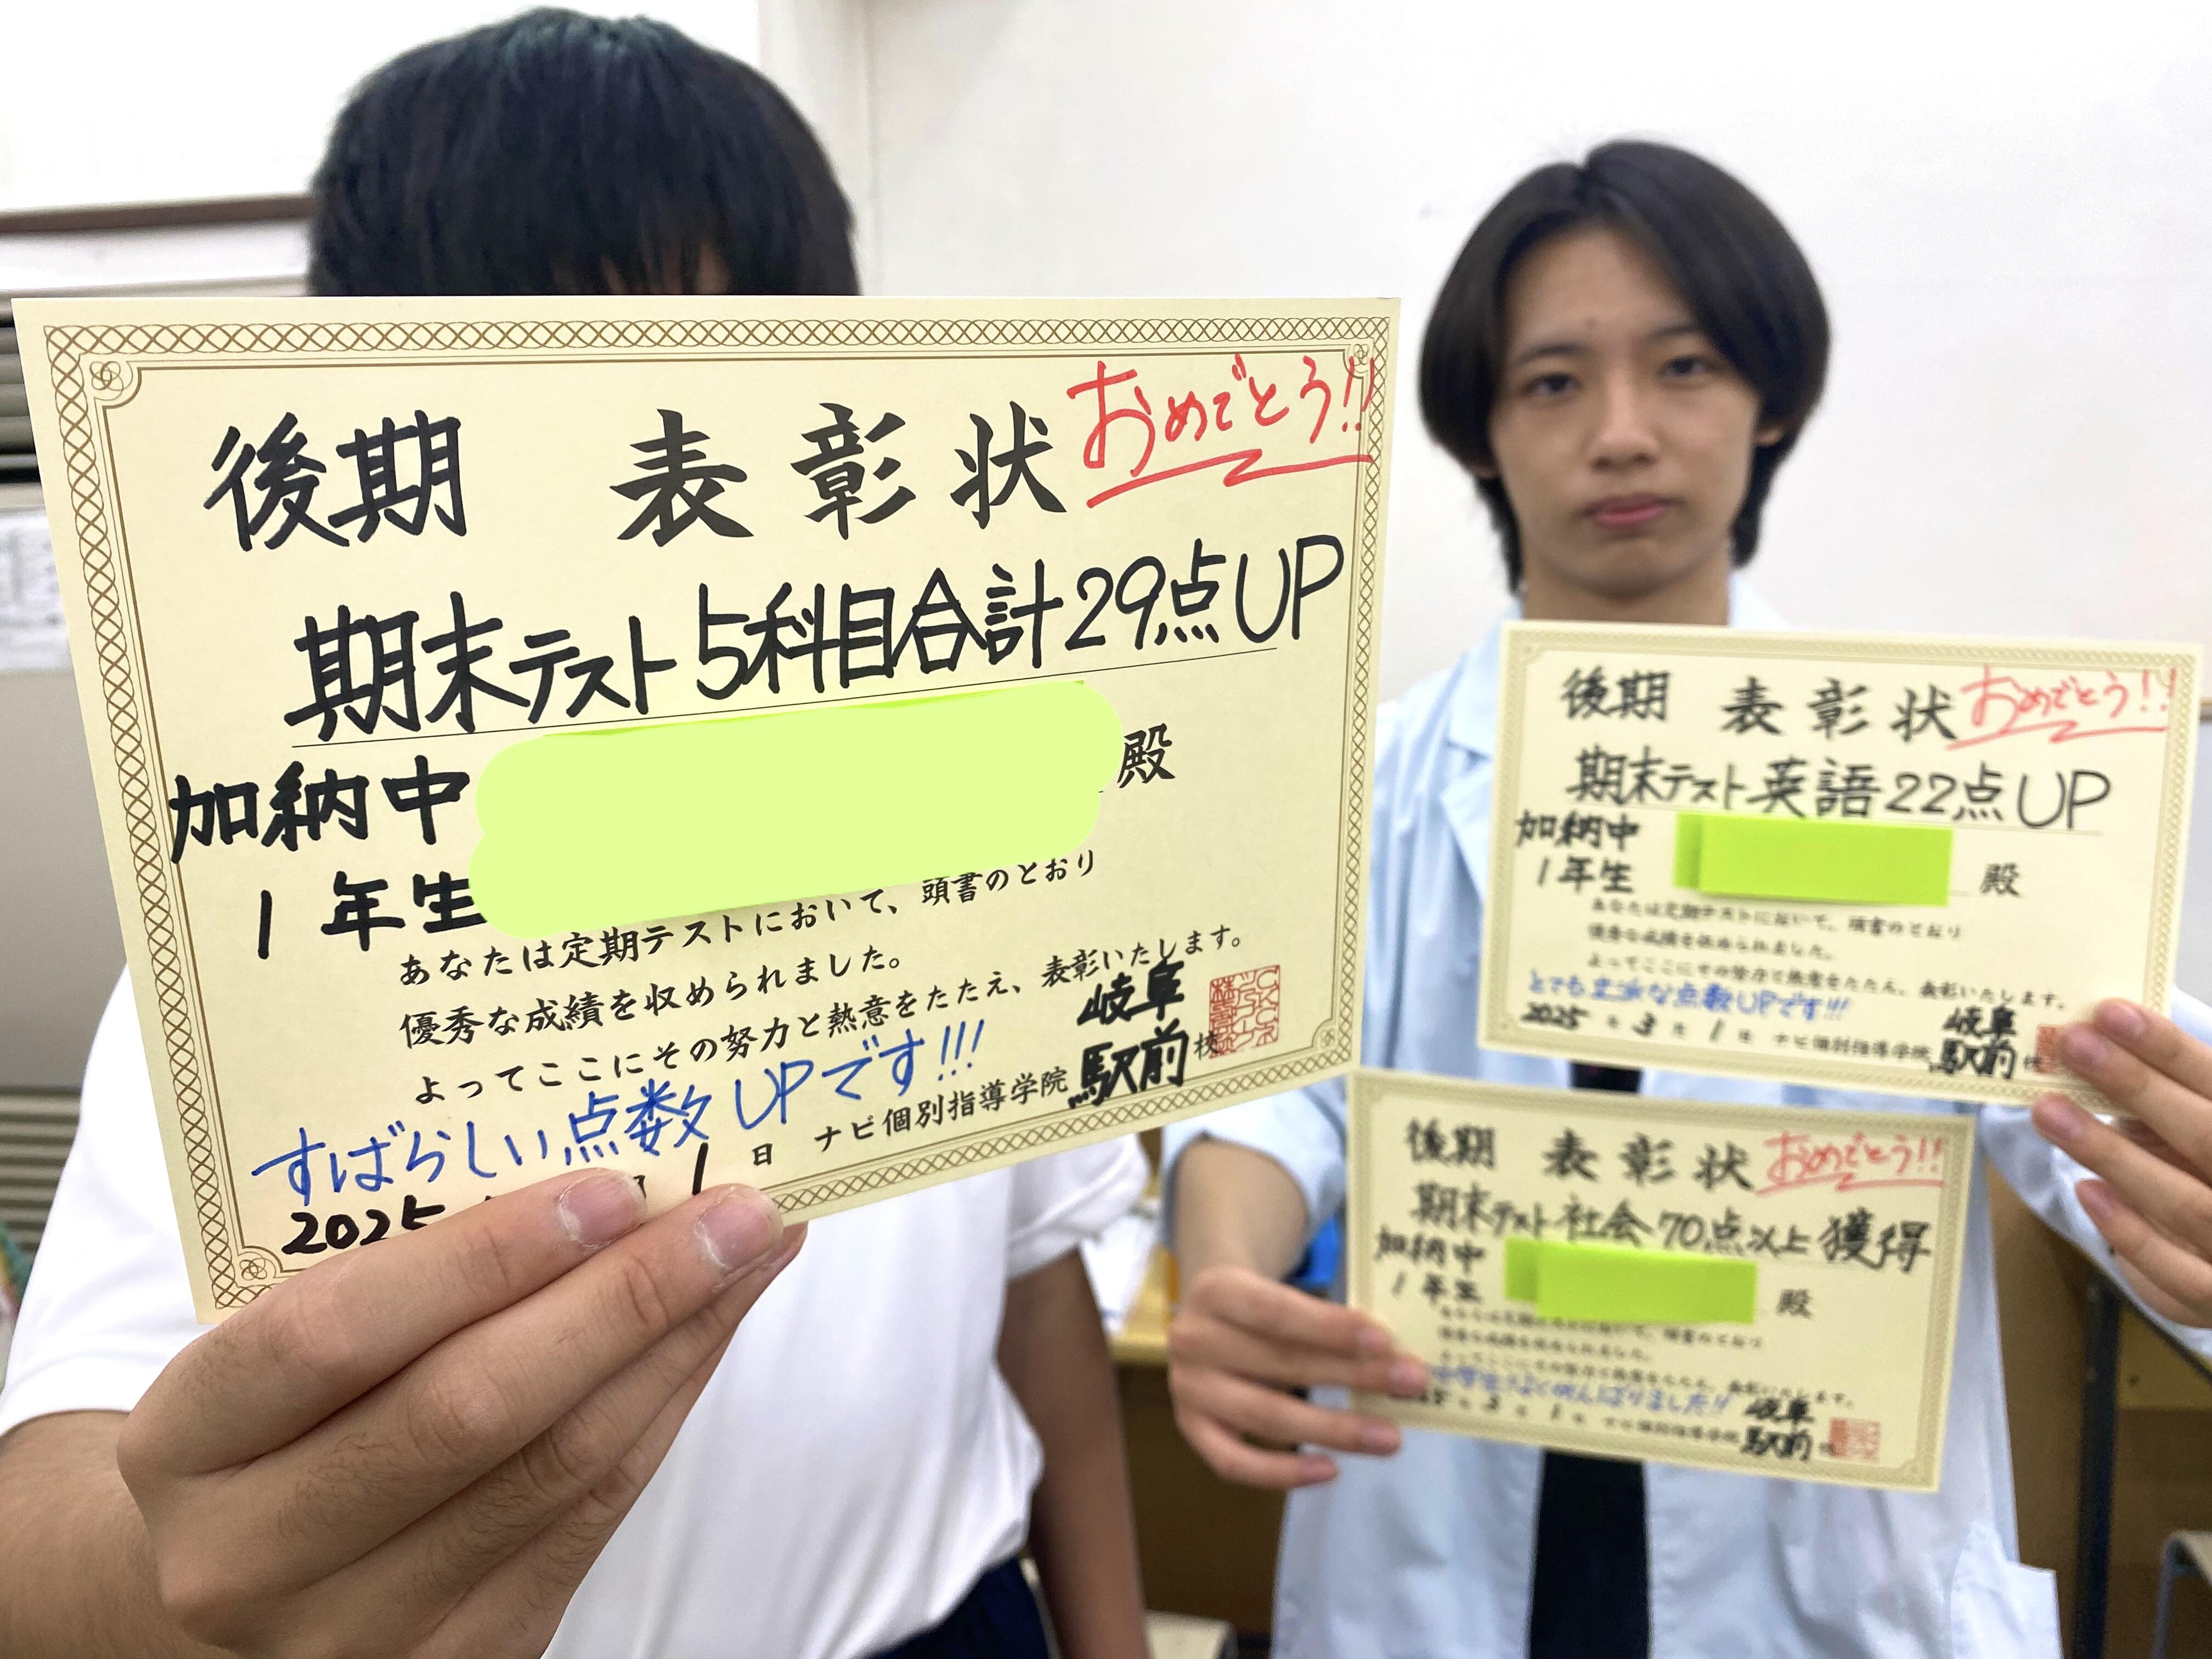 後期 表彰状 おめでとう!!
期末テスト5科目合計29点UP
加納中
殿
1年生
あなたは定期テストにおいて、頭書のとおり
優秀な成績を収められました。
よってここにその努力と熱意をたたえ、表彰いたします。
すばらしい点数UPです!!!
2025
1日
ナビ個別指導学院
岐阜
駅前校
後期 表彰状 おめでとう!!
期末テスト英語22点UP
加納中
1年生
殿
あなたは定期テストにおいて、頭書のとおり
優秀な成績を収められました。
よってここにその努力と熱意をたたえ、表彰いたします。
とても立派な点数UPです!!!
2025年3月1日 ナビ個別指導学院
岐阜
駅前校
後期 表彰状 おめでとう!!
期末テスト社会70点以上獲得
加納中
1年生
殿
頭書のとおり
優秀な成績を収められました。
よってここにその努力と熱意をたたえ、表彰いたします。
よくがんばりました!!
ナビ個別指導学院
岐阜
駅前校